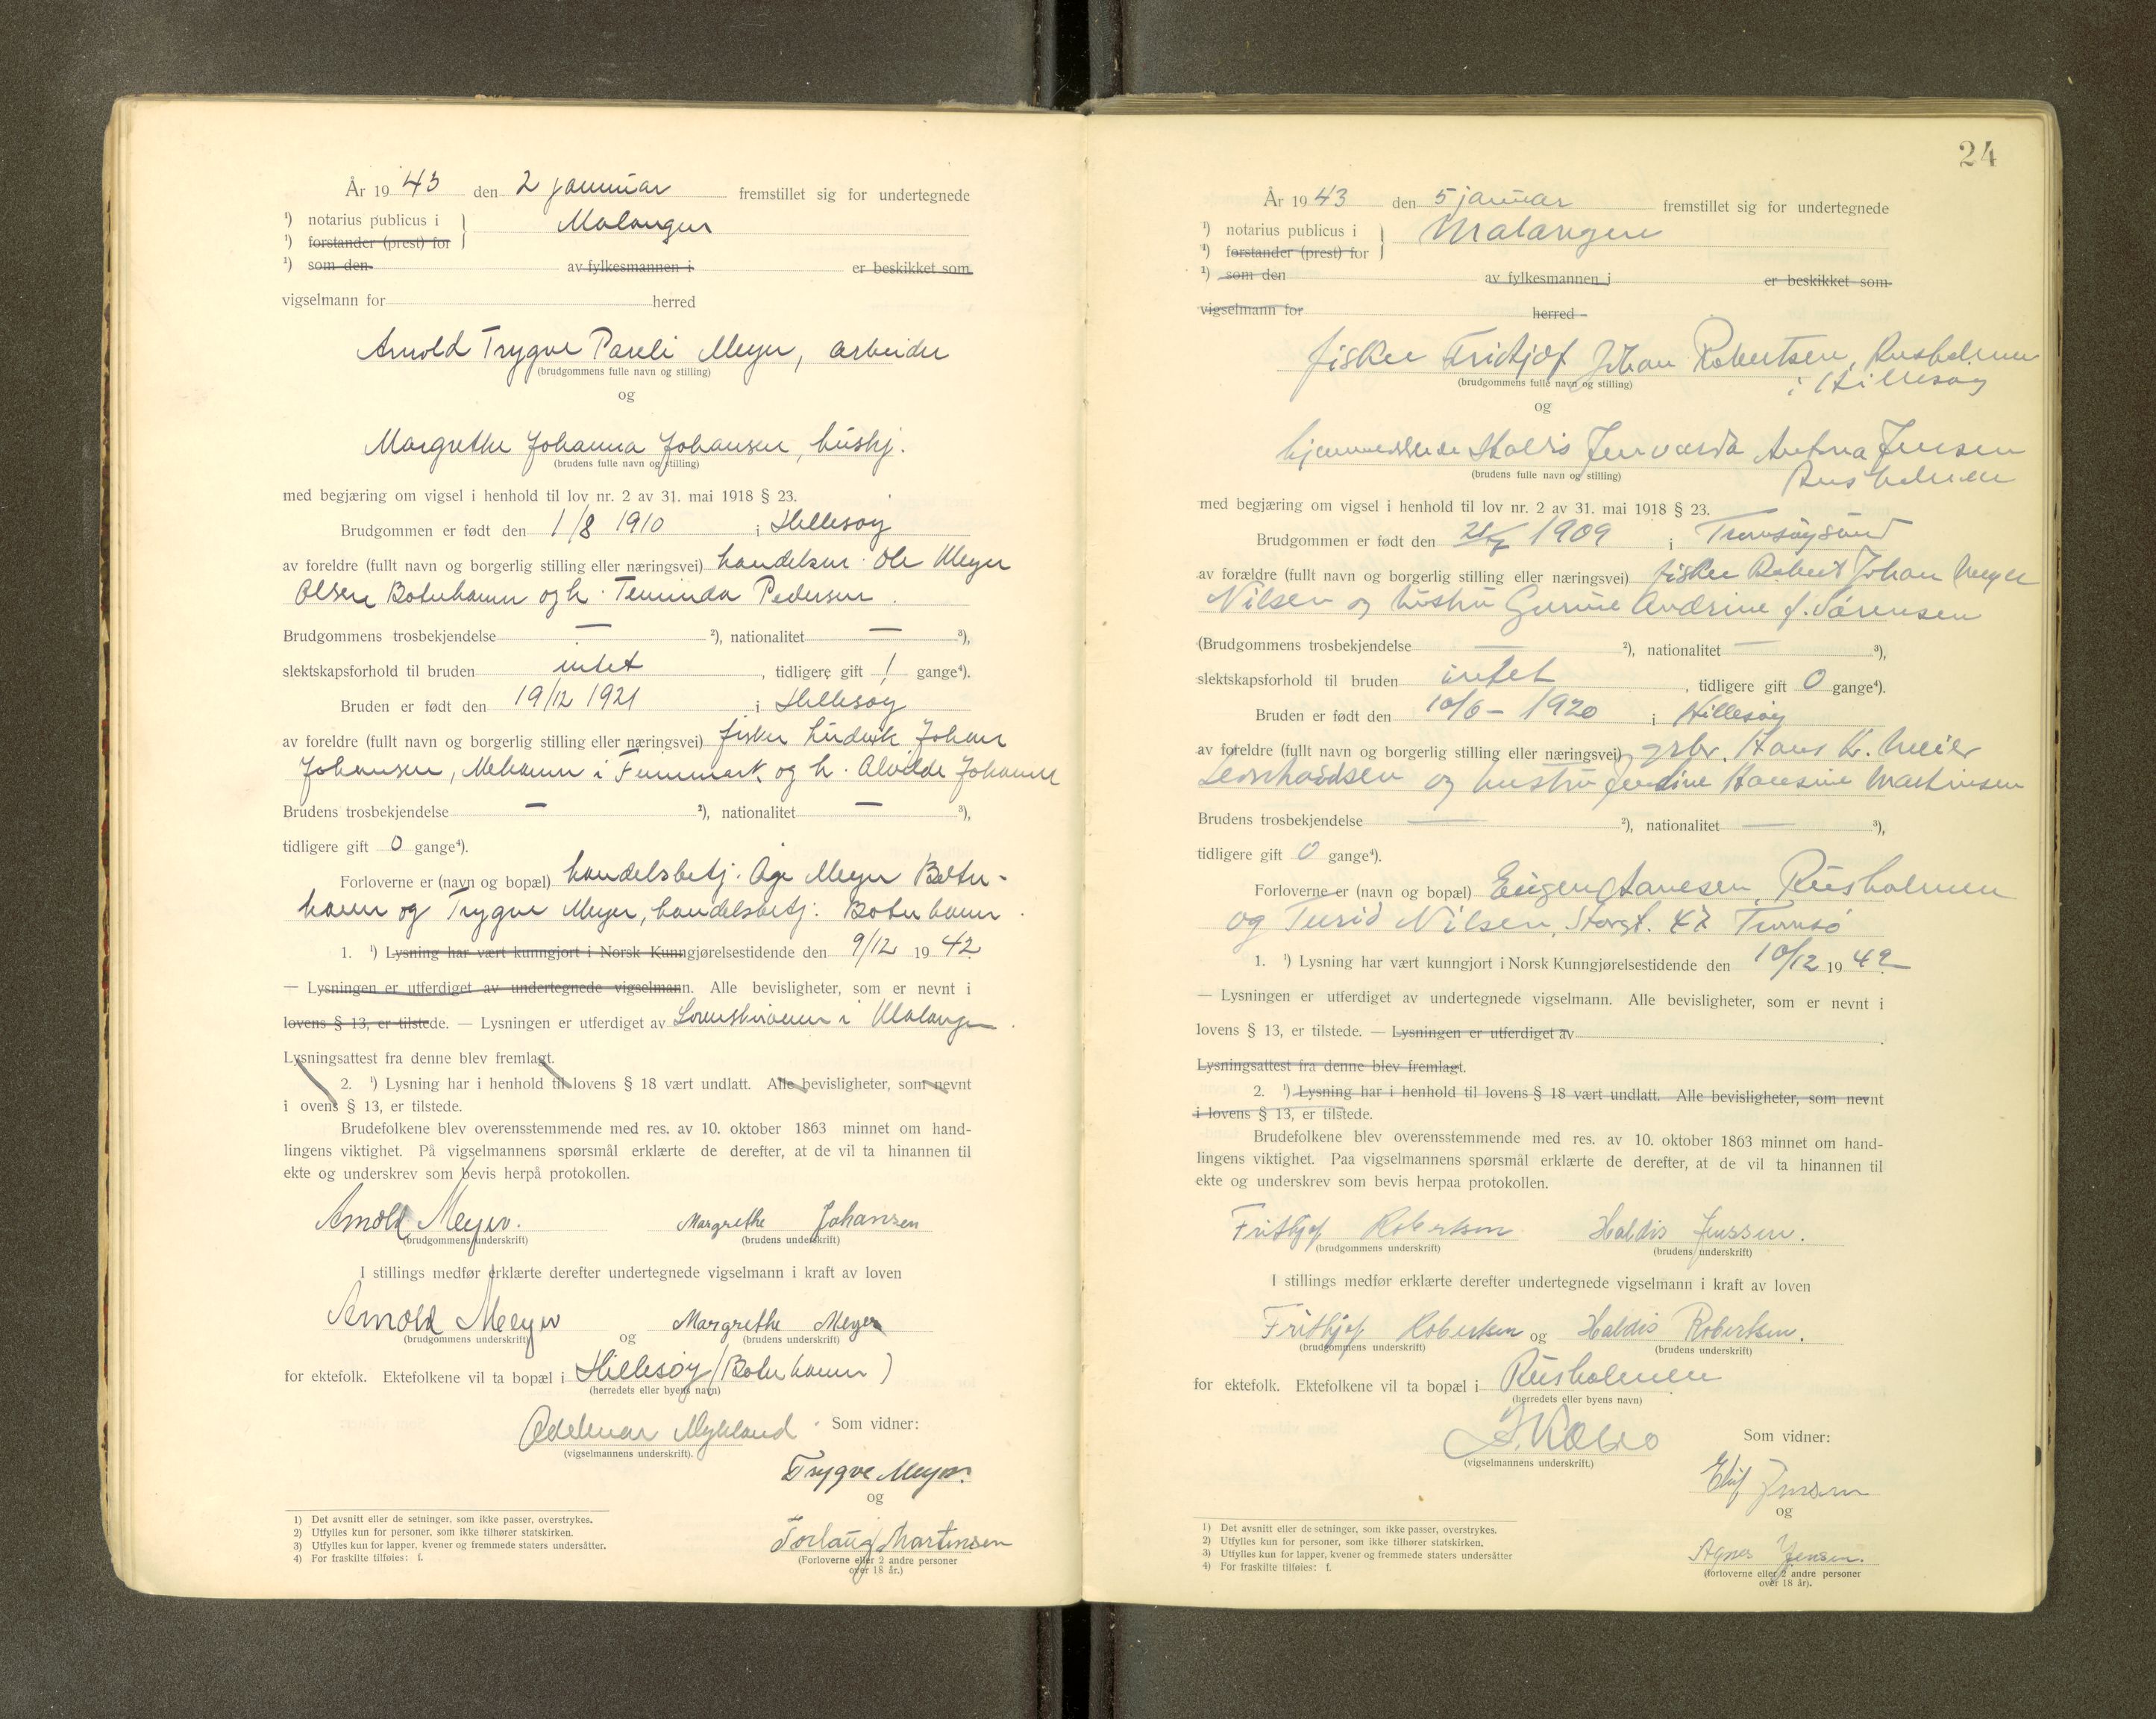 År 1943 den 2 januar fremstillet sig for undertegnede
¹) notarius publicus i } Malangen
¹) forstander (prest) for
¹) som den av fylkesmannen i er beskikket som
vigselmann for herred
Arnold Trygve Pareli Meyer, arbeider
(brudgommens fulle navn og stilling)
og
Margrethe Johanna Johansen, hushj.
(brudens fulle navn og stilling)
med begjæring om vigsel i henhold til lov nr. 2 av 31. mai 1918 § 23.
Brudgommen er født den 1/8 1910 i Hillesøy
av foreldre (fullt navn og borgerlig stilling eller næringsvei) handelsm. Ole Meyer
Olsen Botnhamn og h. Pedersen.
Brudgommens trosbekjendelse — ²), nationalitet — ³),
slektskapsforhold til bruden intet, tidligere gift 1 gange⁴).
Bruden er født den 19/12 1921 i Hillesøy
av foreldre (fullt navn og borgerlig stilling eller næringsvei) fisker Johan
Johansen, Mehamn i Finnmark og h. Alvilde Johanne
Brudens trosbekjendelse — ²), nationalitet — ³),
tidligere gift 0 gange⁴).
Forloverne er (navn og bopæl) handelsbetj. Åge Meyer Botn-
hamn og Trygve Meyer, handelsbetj. Botnhamn.
1. ¹) Lysning har vært kunngjort i Norsk Kunngjørelsestidende den 9/12 1942
— Lysningen er utferdiget av undertegnede vigselmann. Alle bevisligheter, som er nevnt i
lovens § 13, er tilstede. — Lysningen er utferdiget av i Malangen.
Lysningsattest fra denne blev fremlagt.
2. ¹) Lysning har i henhold til lovens § 18 vært undlatt. Alle bevisligheter, som nevnt
i ovens § 13, er tilstede.
Brudefolkene blev overensstemmende med res. av 10. oktober 1863 minnet om hand-
lingens viktighet. På vigselmannens spørsmål erklærte de derefter, at de vil ta hinannen til
ekte og underskrev som bevis herpå protokollen.
Arnold Meyer. Margrethe Johansen
(brudgommens underskrift) (brudens underskrift)
I stillings medfør erklærte derefter undertegnede vigselmann i kraft av loven
Arnold Meyer og Margrethe Meyer
(brudgommens underskrift) (brudens underskrift)
for ektefolk. Ektefolkene vil ta bopæl i Hillesøy (Botnhamn)
(herredets eller byens navn)
Adelmar Mykland Som vidner:
(vigselmannens underskrift).
Trygve Meyer.
og
Torlaug Martinsen
(Forloverne eller 2 andre personer
over 18 år.)
1) Det avsnitt eller de setninger, som ikke passer, overstrykes.
2) Utfylles kun for personer, som ikke tilhører statskirken.
3) Utfylles kun for lapper, kvener og fremmede staters undersåtter.
4) For fraskilte tilføies: f.
24
År 1943 den 5 januar fremstillet sig for undertegnede
¹) notarius publicus i } Malangen
¹) forstander (prest) for
¹) som den av fylkesmannen i er beskikket som
vigselmann for herred
fisker Fridtjof Johan Robertsen, Rusholmen
(brudgommens fulle navn og stilling) i Hillesøy
og
hjemmeværende Haldis Antona Jensen
(brudens fulle navn og stilling) Rusholmen
med begjæring om vigsel i henhold til lov nr. 2 av 31. mai 1918 § 23.
Brudgommen er født den 1909 i Tromsøysund
av forældre (fullt navn og borgerlig stilling eller næringsvei) fisker Robert Johan Meyer
Nilsen og hustru Gurine Andrine f. Sørensen
(Brudgommens trosbekjendelse — ²), nationalitet — ³),
slektskapsforhold til bruden intet, tidligere gift 0 gange⁴).
Bruden er født den 10/6 - 1920 i Hillesøy
av foreldre (fullt navn og borgerlig stilling eller næringsvei) grbr. Hans Kr. Meier
Leonhardsen og hustru Hansine Martinsen
Brudens trosbekjendelse — ²), nationalitet — ³),
tidligere gift 0 gange⁴).
Forloverne er (navn og bopæl) Eugen Hansen, Rusholmen
og Turid Nilsen, Storgt. 47 Tromsø
1. ¹) Lysning har vært kunngjort i Norsk Kunngjørelsestidende den 10/12 1942
— Lysningen er utferdiget av undertegnede vigselmann. Alle bevisligheter, som er nevnt i
lovens § 13, er tilstede. — Lysningen er utferdiget av .
Lysningsattest fra denne blev fremlagt.
2. ¹) Lysning har i henhold til lovens § 18 vært undlatt. Alle bevisligheter, som nevnt
i lovens § 13, er tilstede.
Brudefolkene blev overensstemmende med res. av 10. oktober 1863 minnet om hand-
lingens viktighet. Paa vigselmannens spørsmål erklærte de derefter, at de vil ta hinannen til
ekte og underskrev som bevis herpaa protokollen.
Frithjof Robertsen Haldis Jenssen.
(brudgommens underskrift) (brudens underskrift)
I stillings medfør erklærte derefter undertegnede vigselmann i kraft av loven
Frithjof Robertsen og Haldis Robertsen.
(brudgommens underskrift) (brudens underskrift)
for ektefolk. Ektefolkene vil ta bopæl i Rusholmen
(herredets eller byens navn)
Som vidner:
(vigselmannens underskrift.)
Jensen
og
Agnes Jensen.
(forloverne eller 2 andre personer
over 18 år).
1) Det avsnitt eller de setninger, som ikke passer, overstrykes.
2) Utfylles kun for personer, som ikke tilhører statskirken.
3) Utfylles kun for lapper, kvener og fremmede staters undersåtter
4) For fraskilte tilføies: f.